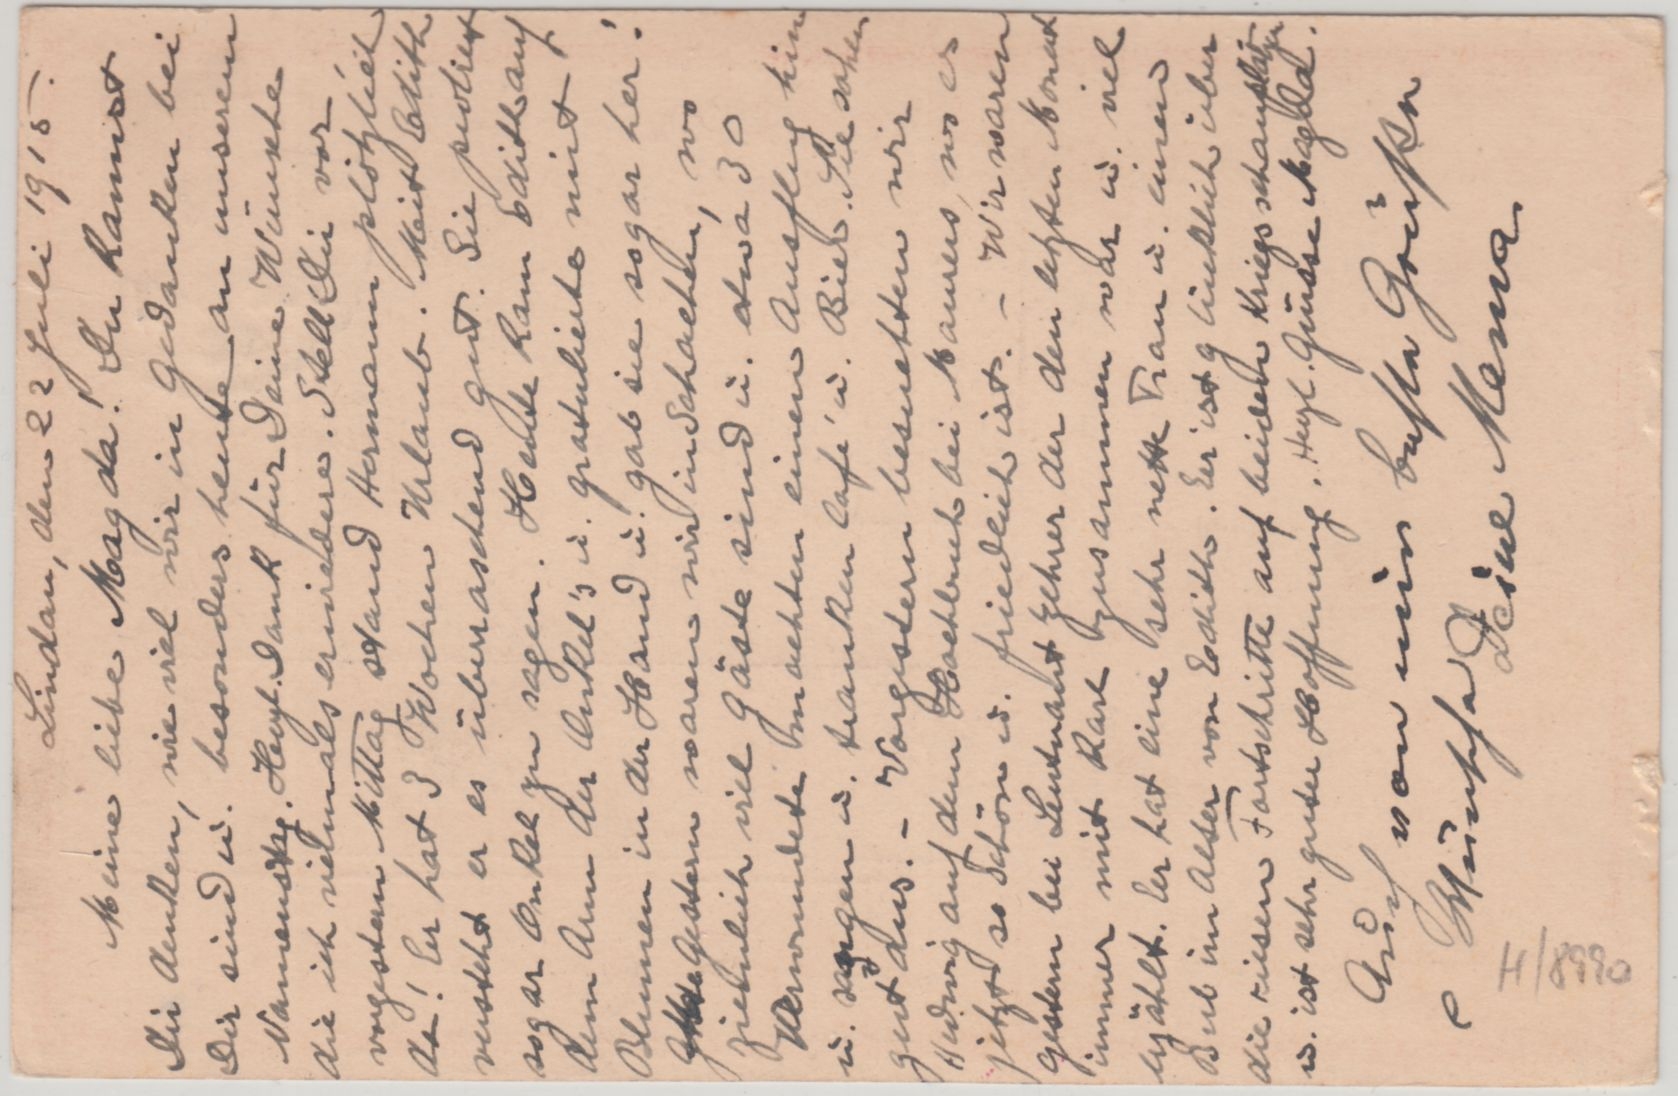 Lindau, den 22 Juli 1915.
Meine liebe Magda! Du kannst
Dir denken, wie viel wir in Gedanken bei
Dir sind u. besonders heute an unserem
Namenstag. Herzl. Dank für Deine Wünsche
die ich vielmals erwidere. Stell Dir vor
vorgestern Mittag stand Hermann plötzlich
da! Er hat 3 Wochen Urlaub. Mit Edith
versteht er es überraschend gut. Sie
sogar Onkel zu sagen. Heute kam Edith auf
dem Arm der Onkel's u. gratulierte mit
Blumen in der Hand u. gab sie sogar her!
Gestern waren wir in Schachen, wo
ziemlich viel Gäste sind u. etwa 30
Verwundete machten einen Ausflug hin
u. sangen u. tranken Café u. Bier. Sie sahen
gut aus. – Vorgestern besuchten wir
Hedwig auf dem Hochbuch bei Maurers, wo es
jetzt so schön u. friedlich ist. – Wir waren
gestern bei Leutnant Zehrer der den letzten Monat
immer mit Karl zusammen war u. viel
erzählt. Er hat eine sehr nette Frau u. einen
Bub im Alter von Edith. Er ist glücklich über
die riesen Fortschritte auf beiden Kriegsschauplätzen
u. ist sehr guter Hoffnung. Herzl. Grüsse Magda.
Auch von mir beste Grüße
Wünsche Deine Mama
H/8990